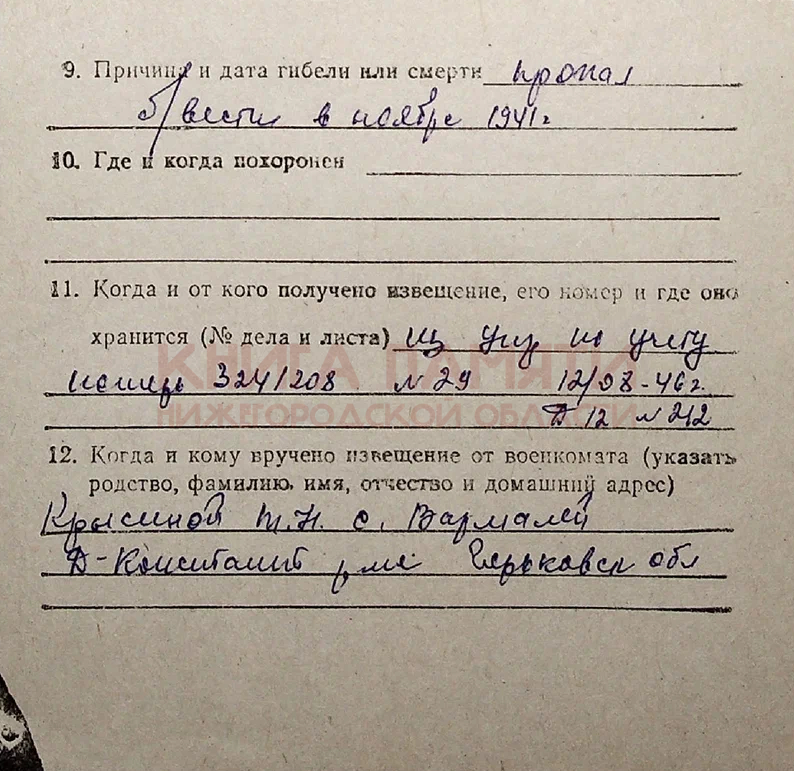 9. Причина и дата гибели или смерти пропал
б/вести в ноябре 1941 г
10. Где и когда похоронен
11. Когда и от кого получено извещение, его номер и где оно
хранится (№ дела и листа) из упр по учету
потерь 324/208 № 29 12/08-46 г.
КНИГА ПАМЯТИ
НИЖЕГОРОДСКОЙ ОБЛАСТИ
Д 12 № 212
12. Когда и кому вручено извещение от военкомата (указать
родство, фамилию, имя, отчество и домашний адрес)
Крысиной Т.Н. с. Вармалей
Д-Констант р-не Горьковск обл